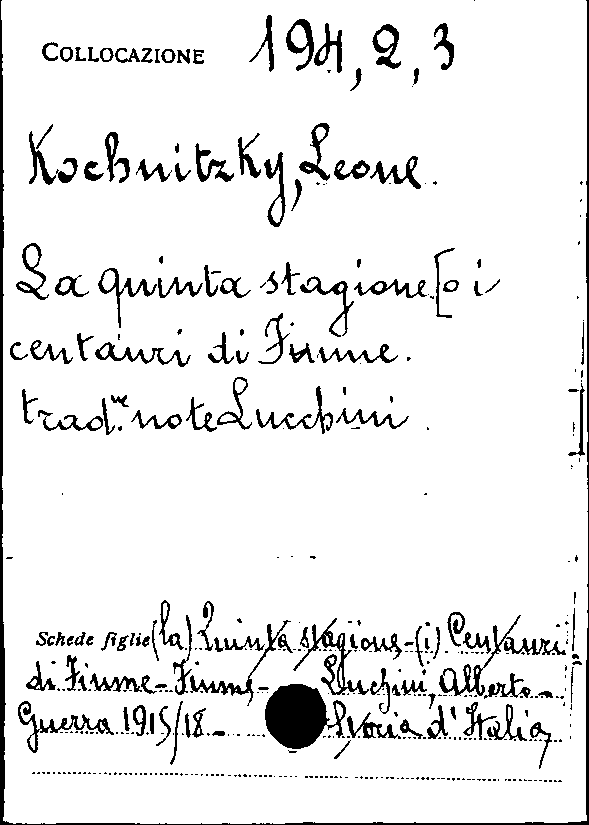 COLLOCAZIONE 194, 2, 3
Kochnitzky, Leone.
La quinta stagione [o i
centauri di Fiume.
trad.ne note Lucchini.
Schede figlie (la) Quinta stagione - (i) Centauri
di Fiume - Fiume - Luchini, Alberto -
Guerra 1915/18 - Storia d'Italia